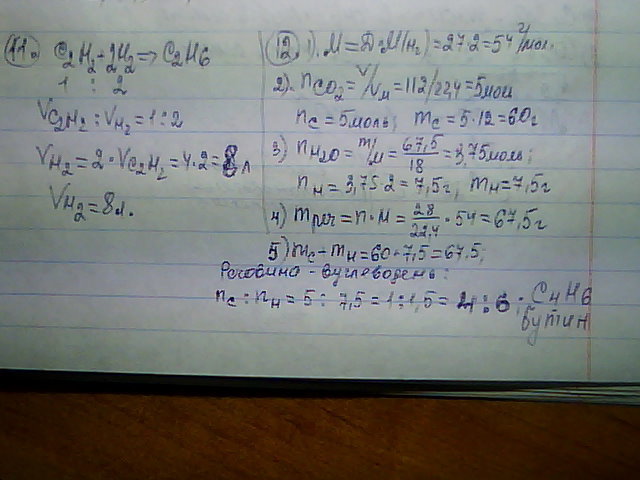 11. C2H2+2H2=>C2H6
1 : 2
VC2H2 : VH2 = 1:2
VH2 = 2·VC2H2 = 4·2 = 8л
VH2 = 8л.
12. 1). M = D·M(H2) = 27·2 = 54 г/мол.
2). nCO2 = V/Vм = 112/22,4 = 5мол
nC = 5моль; mC = 5·12 = 60г
3) nH2O = m/M = 67,5/18 = 3,75моль;
nH = 3,75·2 = 7,5г, mH = 7,5г
4) mреч = n·M = 28/22,4 · 54 = 67,5г
5) mC + mH = 60+7,5 = 67.5;
Речовина - вуглеводень:
nC : nH = 5 : 7,5 = 1:1,5 = 4:6. C4H6
бутин